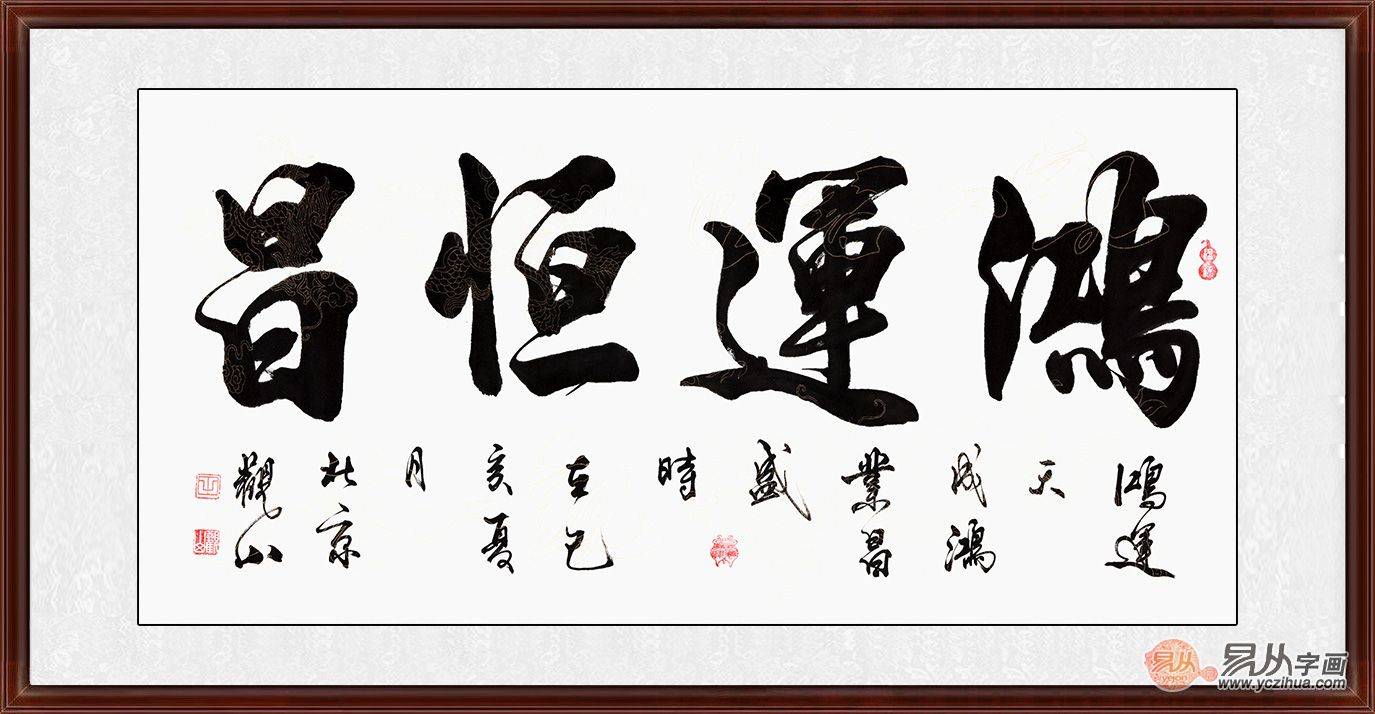 鴻運恒昌
鴻運
天
成鴻
業昌
盛
時
在己
亥夏
月
北京
觀山
易从字画
www.yczihua.com
yejon